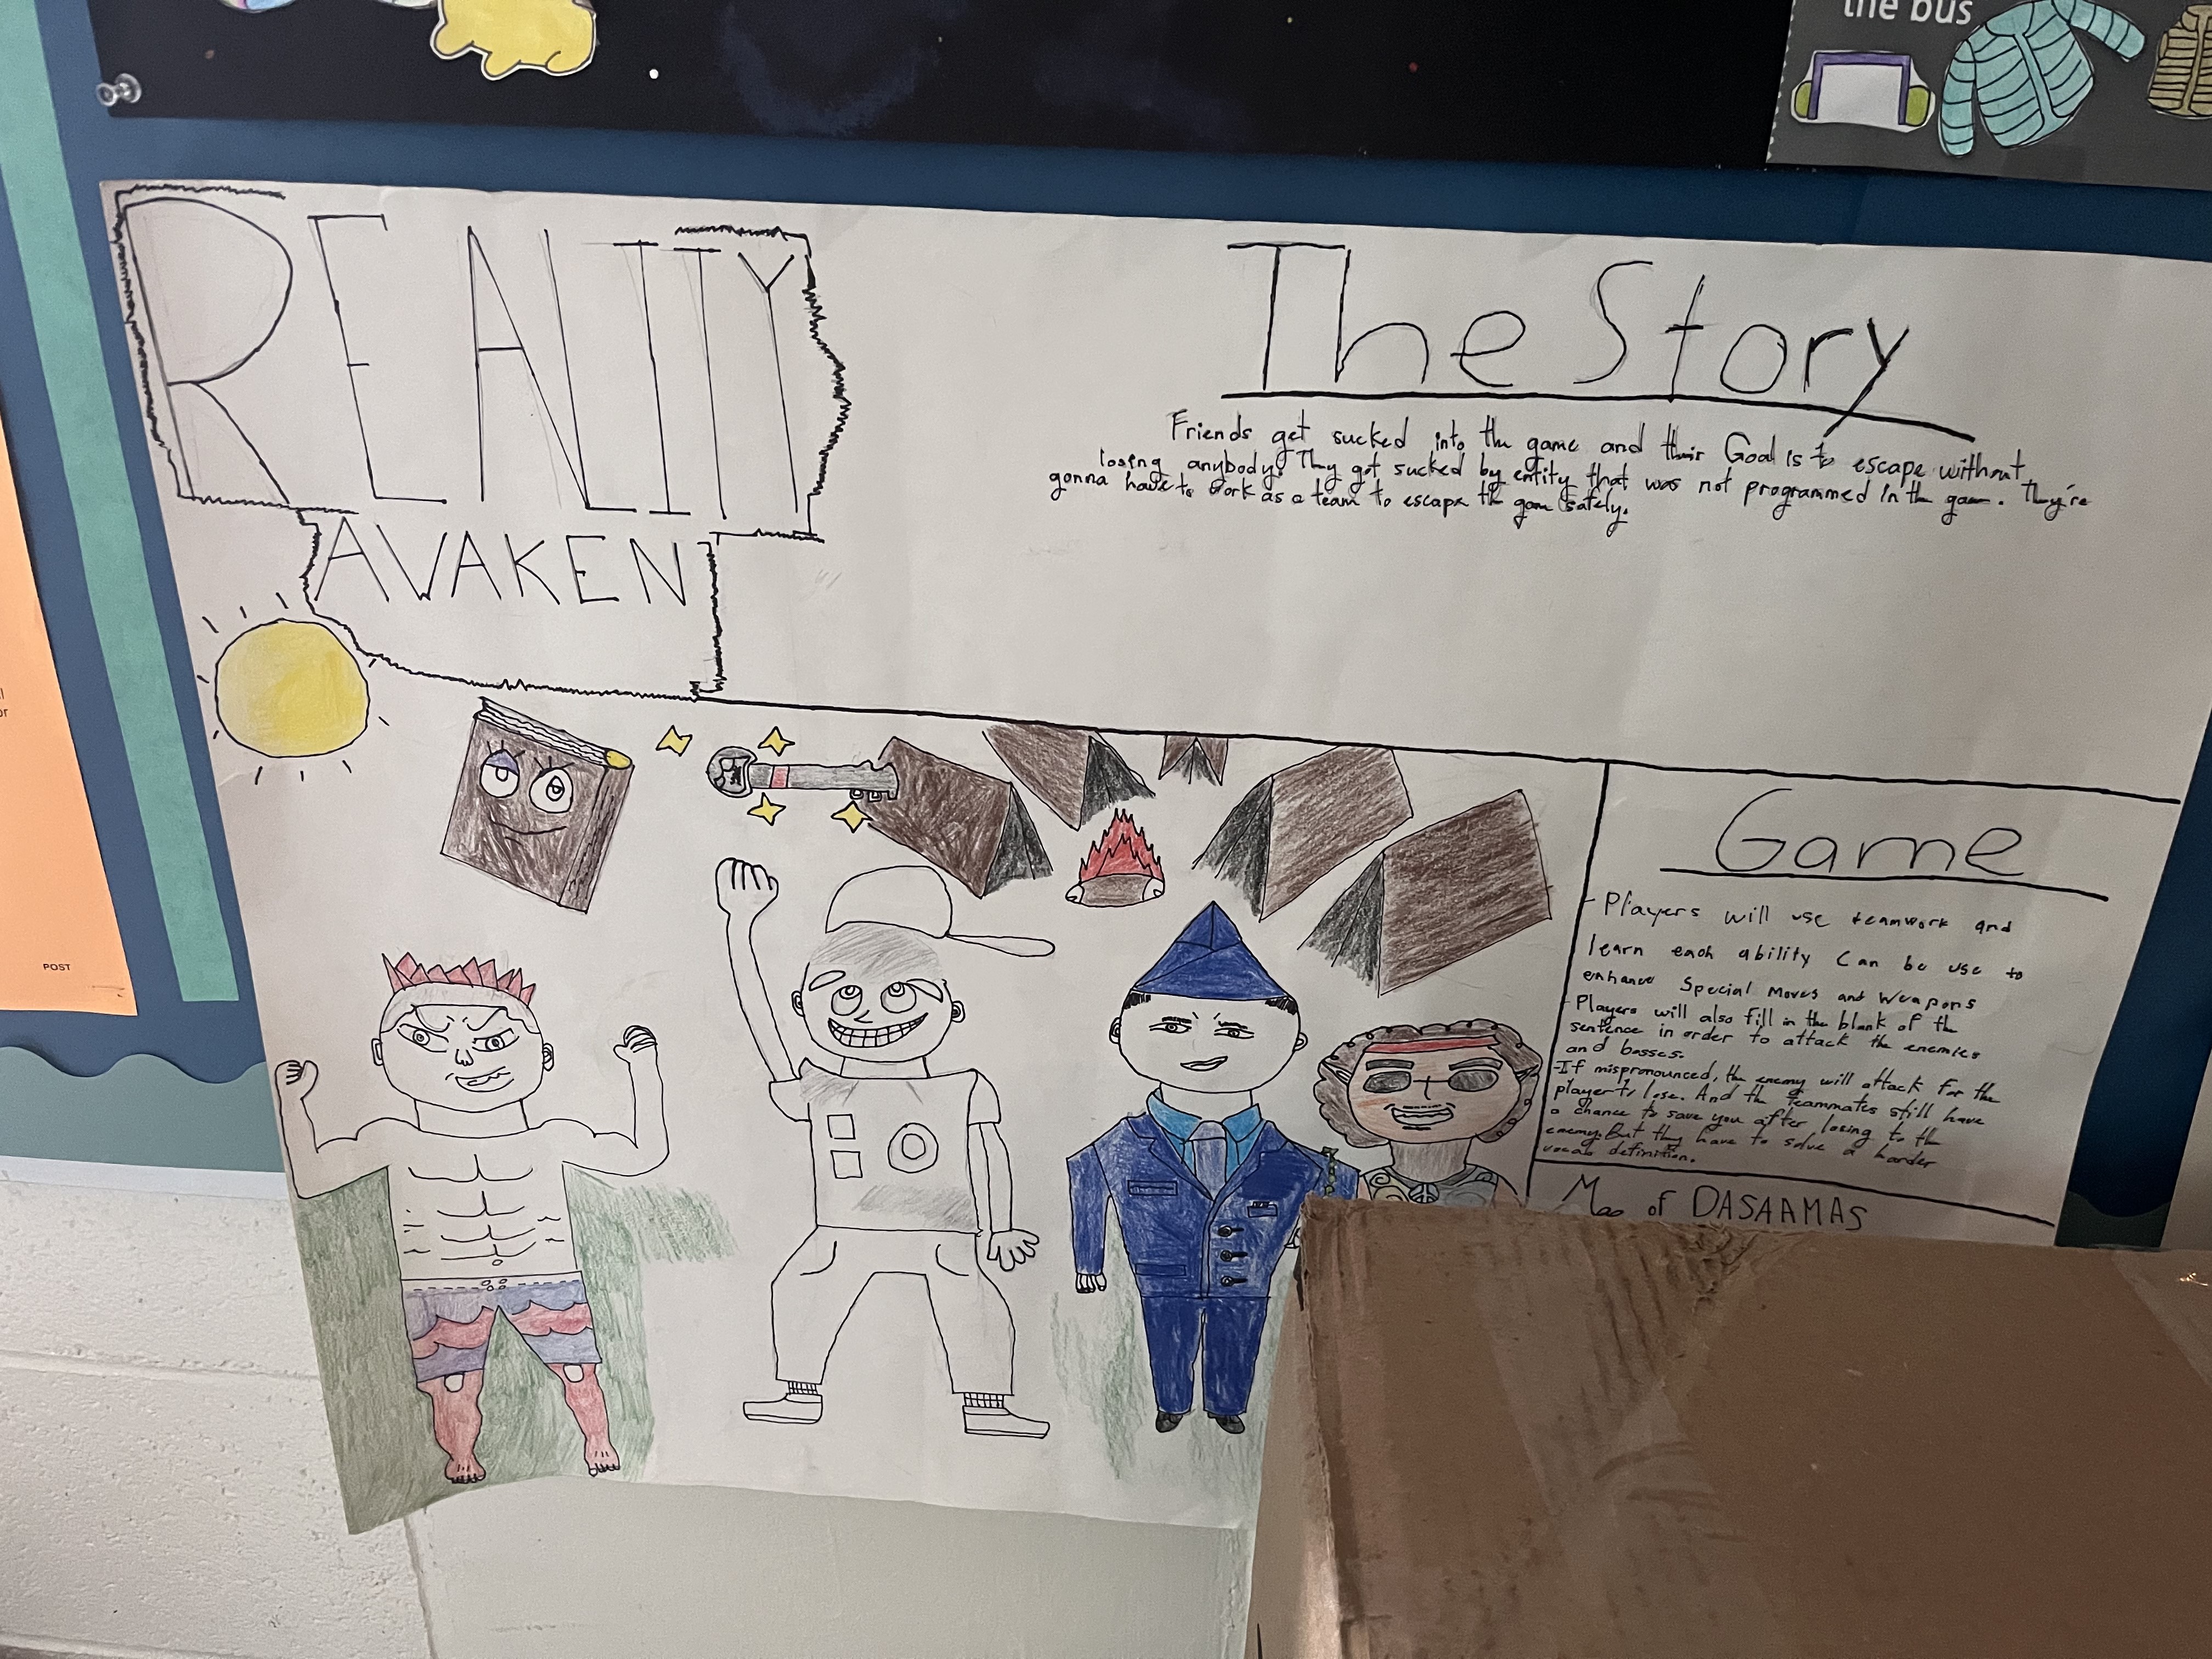 the bus
REALITY
AVAKEN
The Story
Friends get sucked into the game and their Goal is to escape without
losing anybody. They got sucked by entity that was not programmed in the game. They're
gonna have to work as a team to escape the game safely.
Game
- Players will use teamwork and
learn each ability can be use to
enhance Special Moves and Weapons
- Players will also fill in the blank of the
sentence in order to attack the enemies
and bosses.
- If mispronounced, the enemy will attack for the
player to lose. And the teammates still have
a chance to save you after losing to the
enemy. But they have to solve a harder
vocab definition.
Map of DASAAMAS
POST